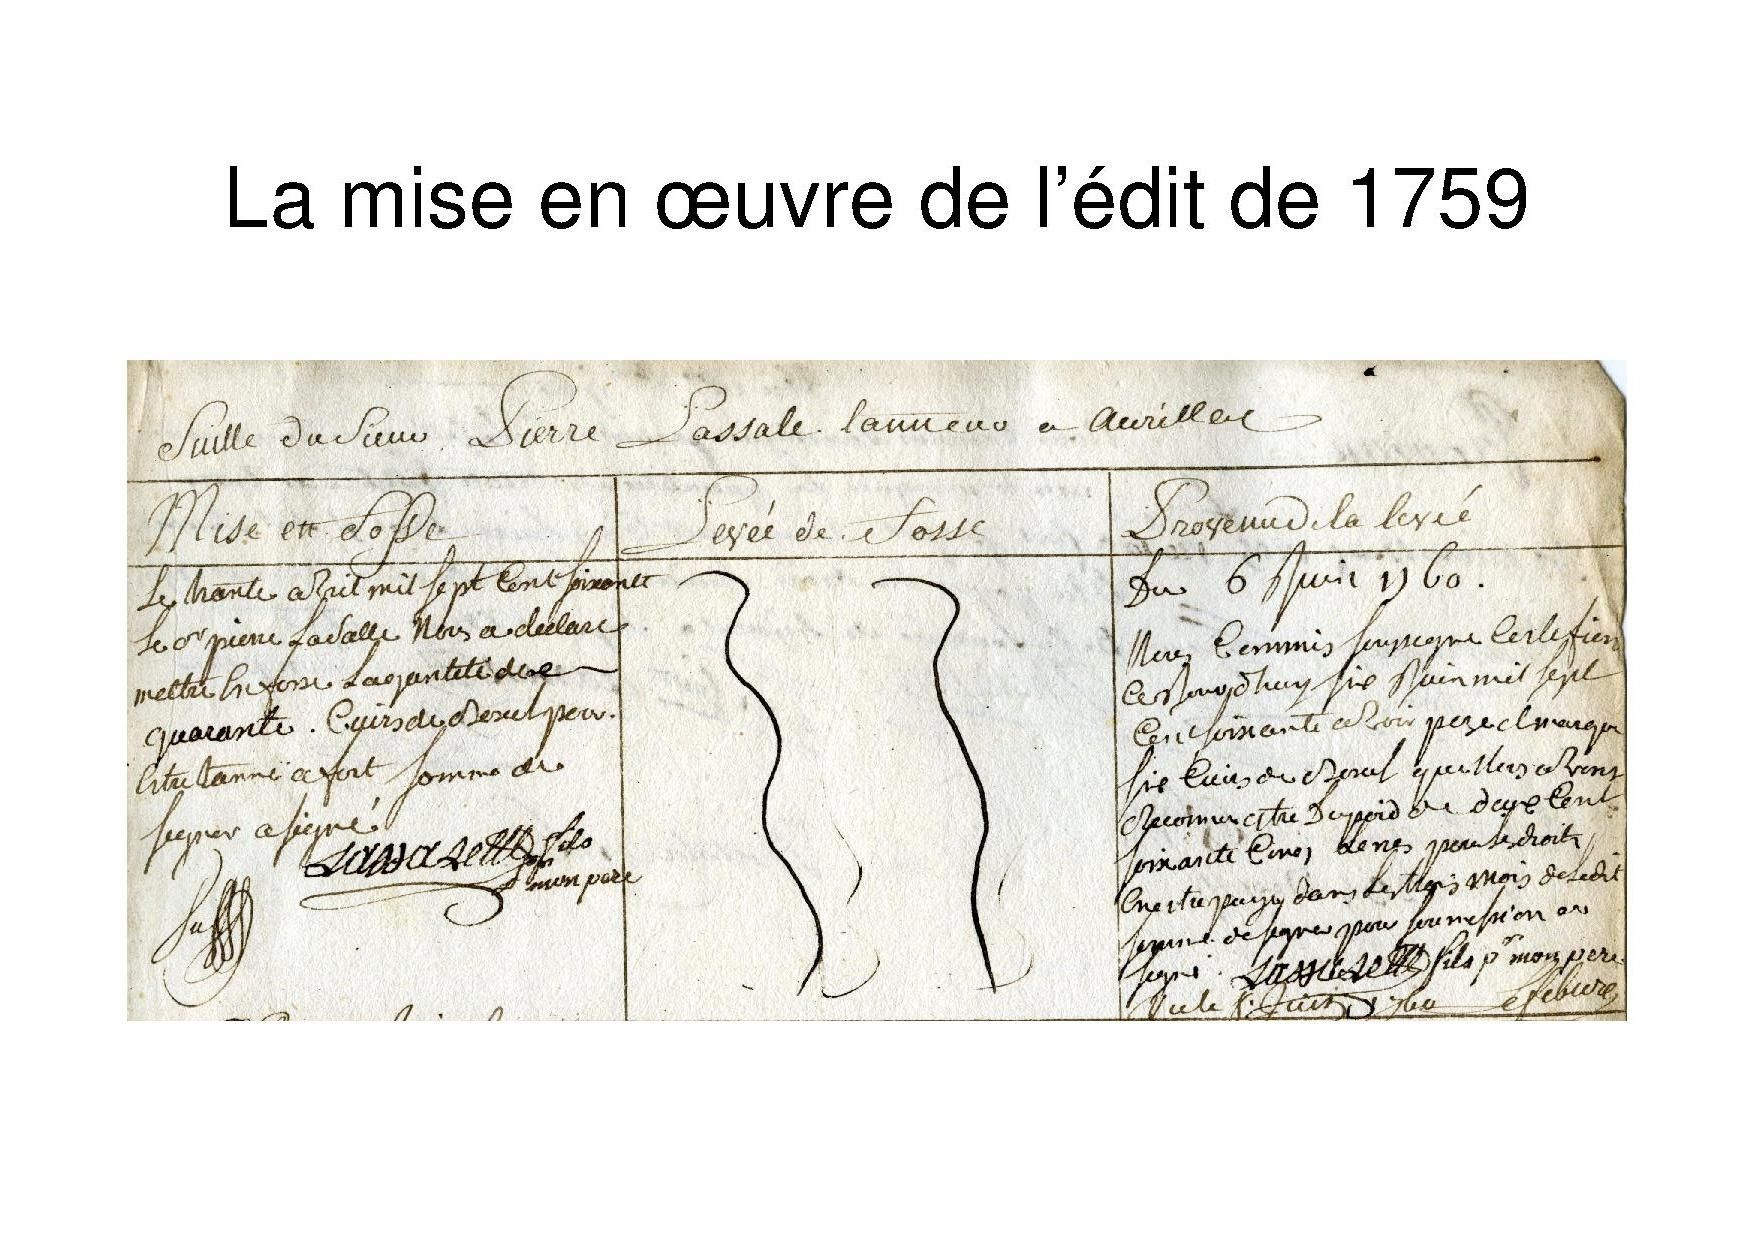 La mise en œuvre de l’édit de 1759
Suille du Sieur Pierre Lassale tanneur a Aurillac
Mise en fosse
Levéé de fosse
Provenu de la levéé
Le trante avril mil sept Cent soixante
le sr pierre Lasalle Nous a declare
mettre En fosse La quantité de
quarante Cuirs de Beuf pour
Estre tanné a fort somme de
signer a signé
fils
pr mon pere
Du 6 Juin 1760.
Nous Commis soussigné Certifions
Cejourdhuy six Juin mil sept
Cent soixante avoir pezé et marqué
six Cuirs de Beuf quillus avons
Reconnu estre Du poid de deux Cent
soixante Cinq livres pour les droits
Enestre payes dans les trois mois de ledit
sommé de signer pour soumession a
signé fils pr mon pere
Vu le Juin 1760 Lefebure